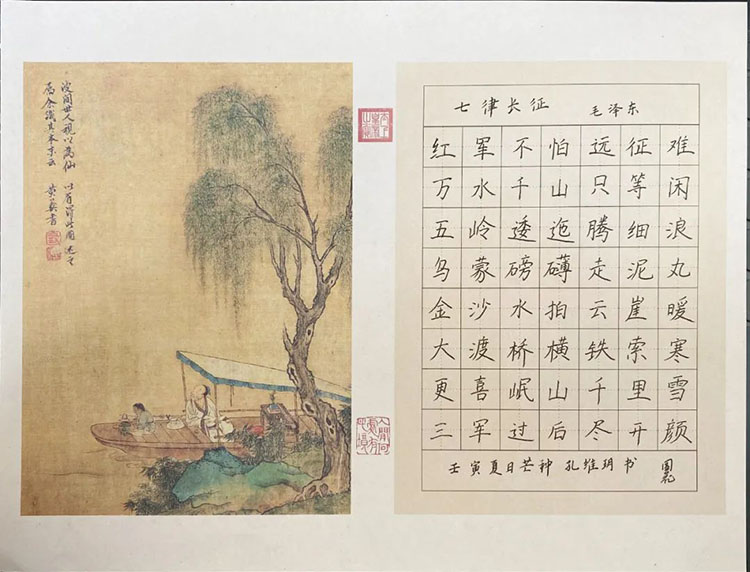 世人视以为仙
七律长征 毛泽东
红军不怕远征难
万水千山只等闲
五岭逶迤腾细浪
乌蒙磅礴走泥丸
金沙水拍云崖暖
大渡桥横铁索寒
更喜岷山千里雪
三军过后尽开颜
壬寅夏日芒种 孔维玥书